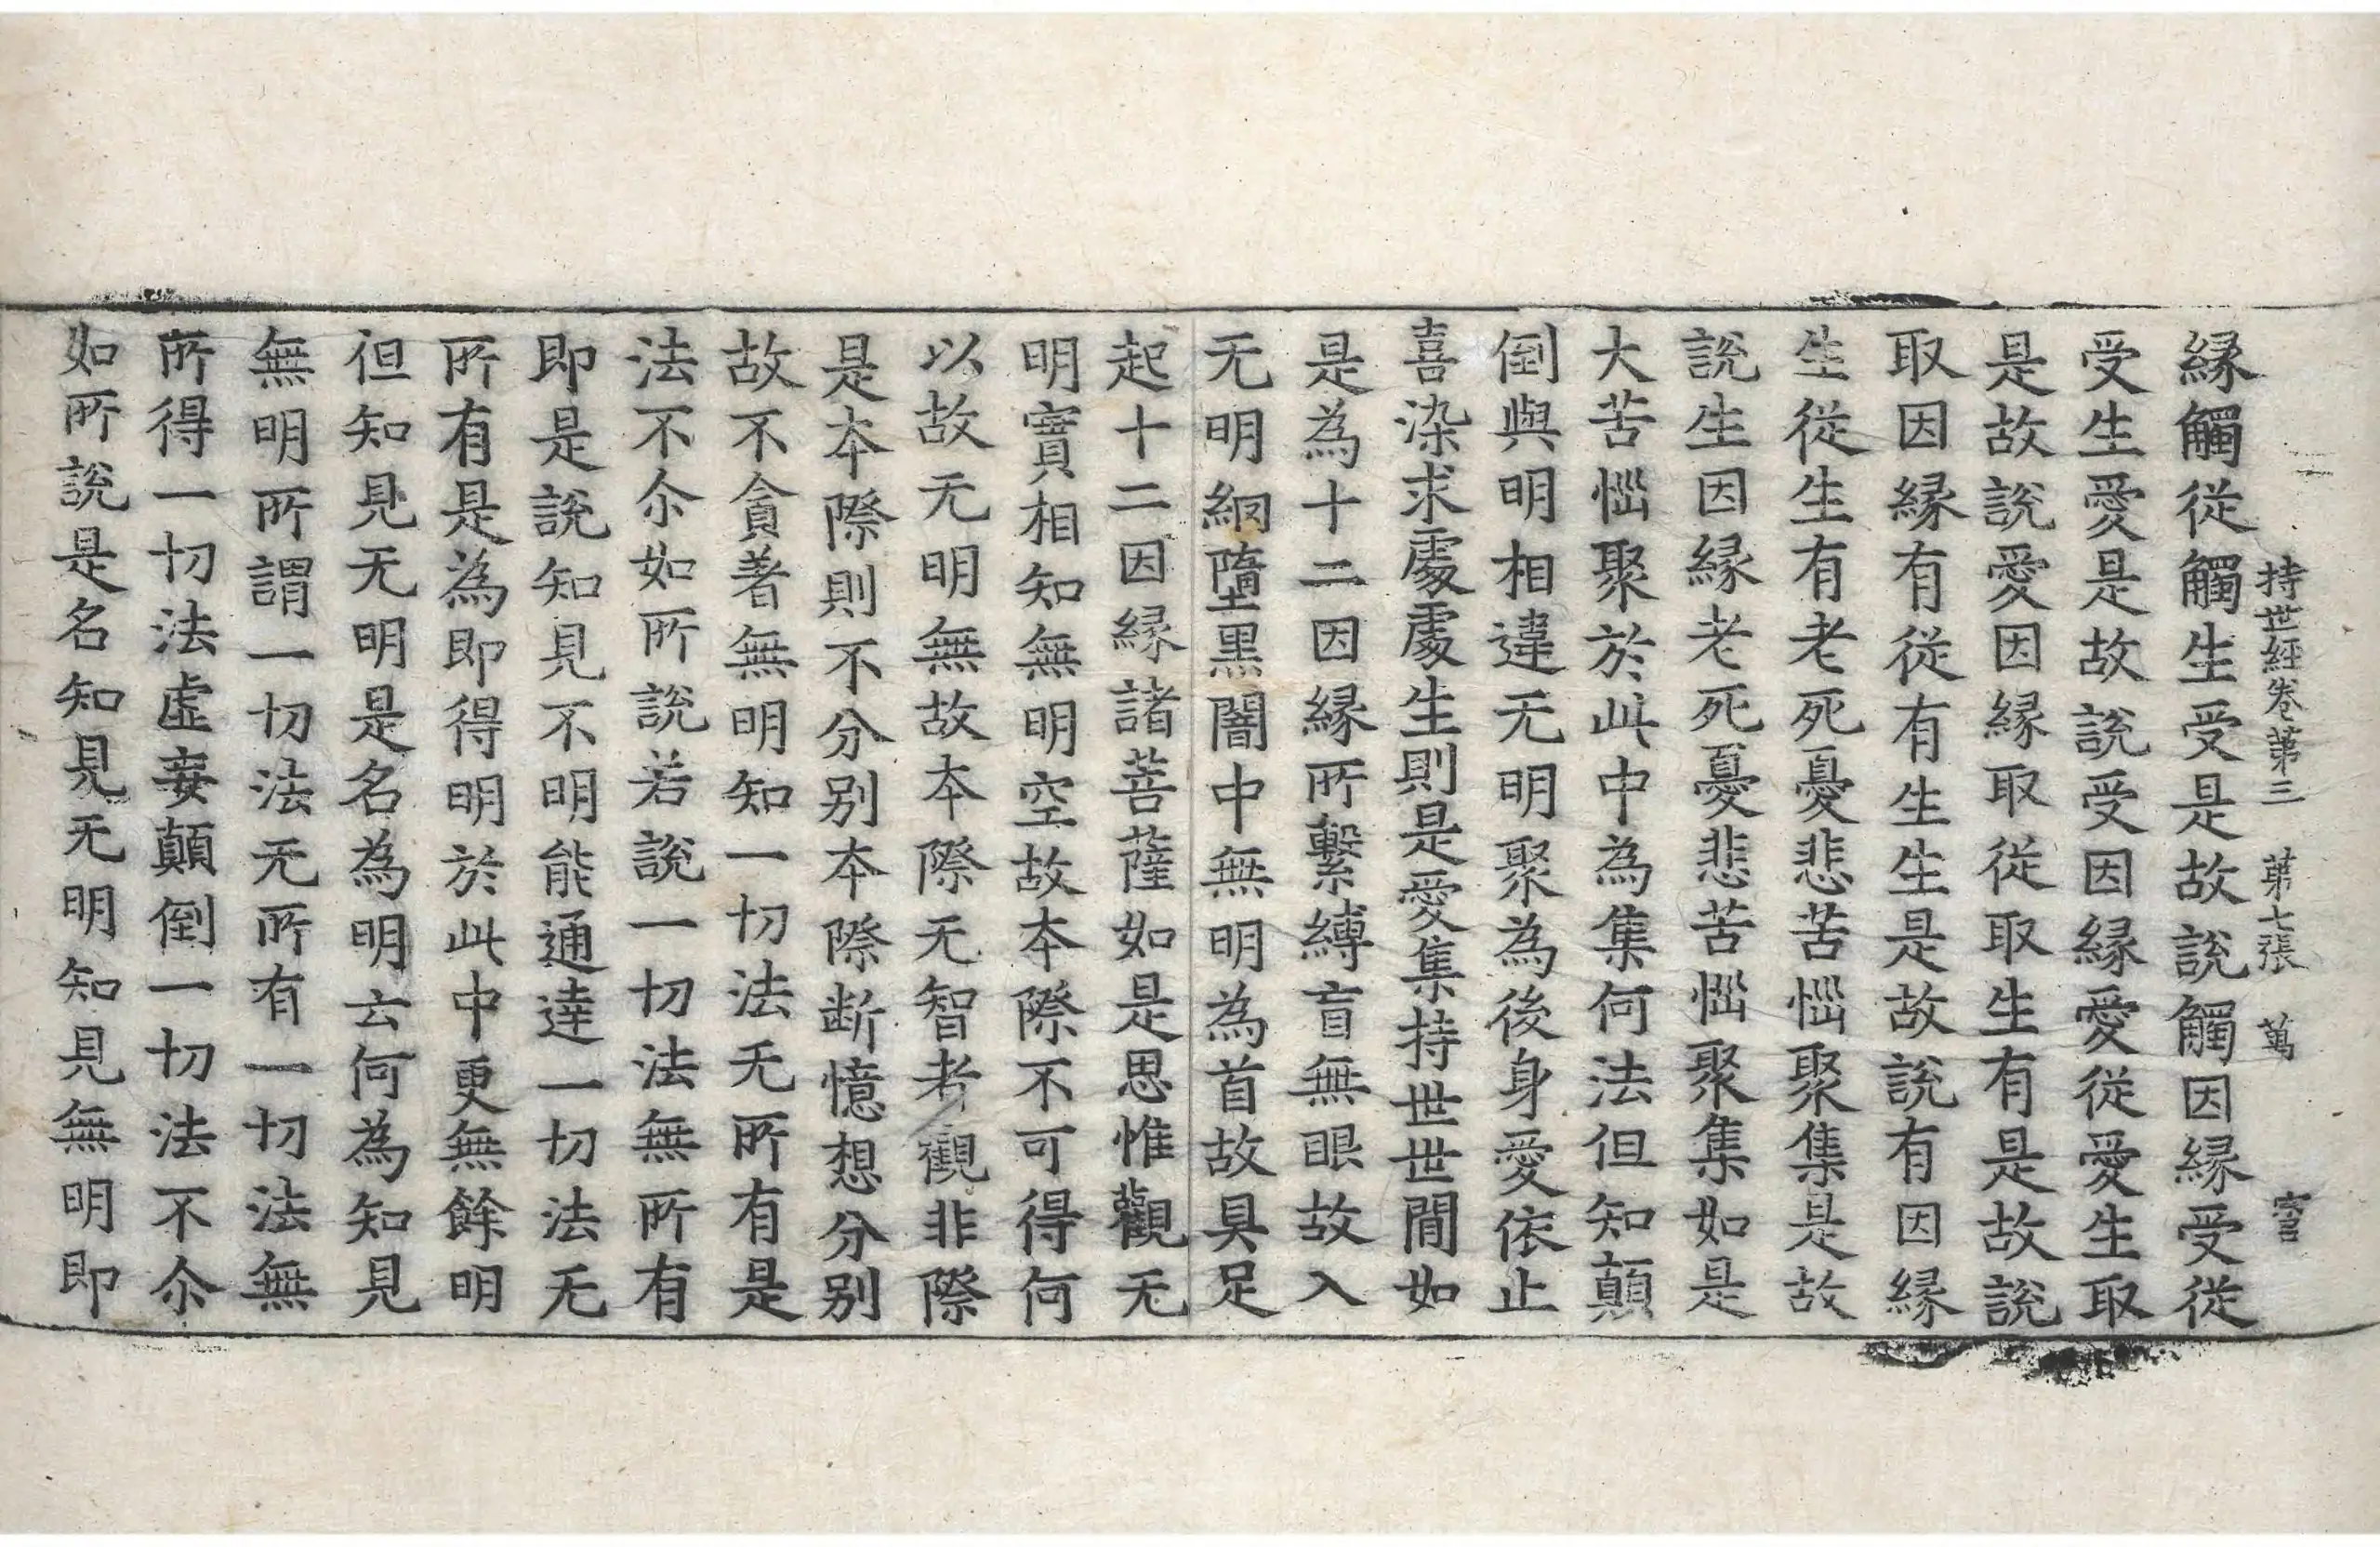 持世經卷第三 第七張 萬
縁觸從觸生受是故說觸因縁受從
受生愛是故說受因縁愛從愛生取
是故說愛因縁取從取生有是故說
取因縁有從有生生是故說有因縁
生從生有老死憂悲苦惱聚集是故
說生因縁老死憂悲苦惱聚集如是
大苦惱聚於此中為集何法但知顛
倒與明相違无明聚為後身愛依止
喜染求處處生則是愛集持世世間如
是為十二因縁所繫縛盲無眼故入
无明網墮黑闇中無明為首故具足
起十二因縁諸菩薩如是思惟觀无
明實相知無明空故本際不可得何
以故无明無故本際无智者觀非際
是本際則不分別本際断憶想分別
故不貪著無明知一切法无所有是
法不尒如所說若說一切法無所有
即是說知見不明能通達一切法无
所有是為即得明於此中更無餘明
但知見无明是名為明云何為知見
無明所謂一切法无所有一切法無
所得一切法虛妄顛倒一切法不尒
如所說是名知見无明知見無明即